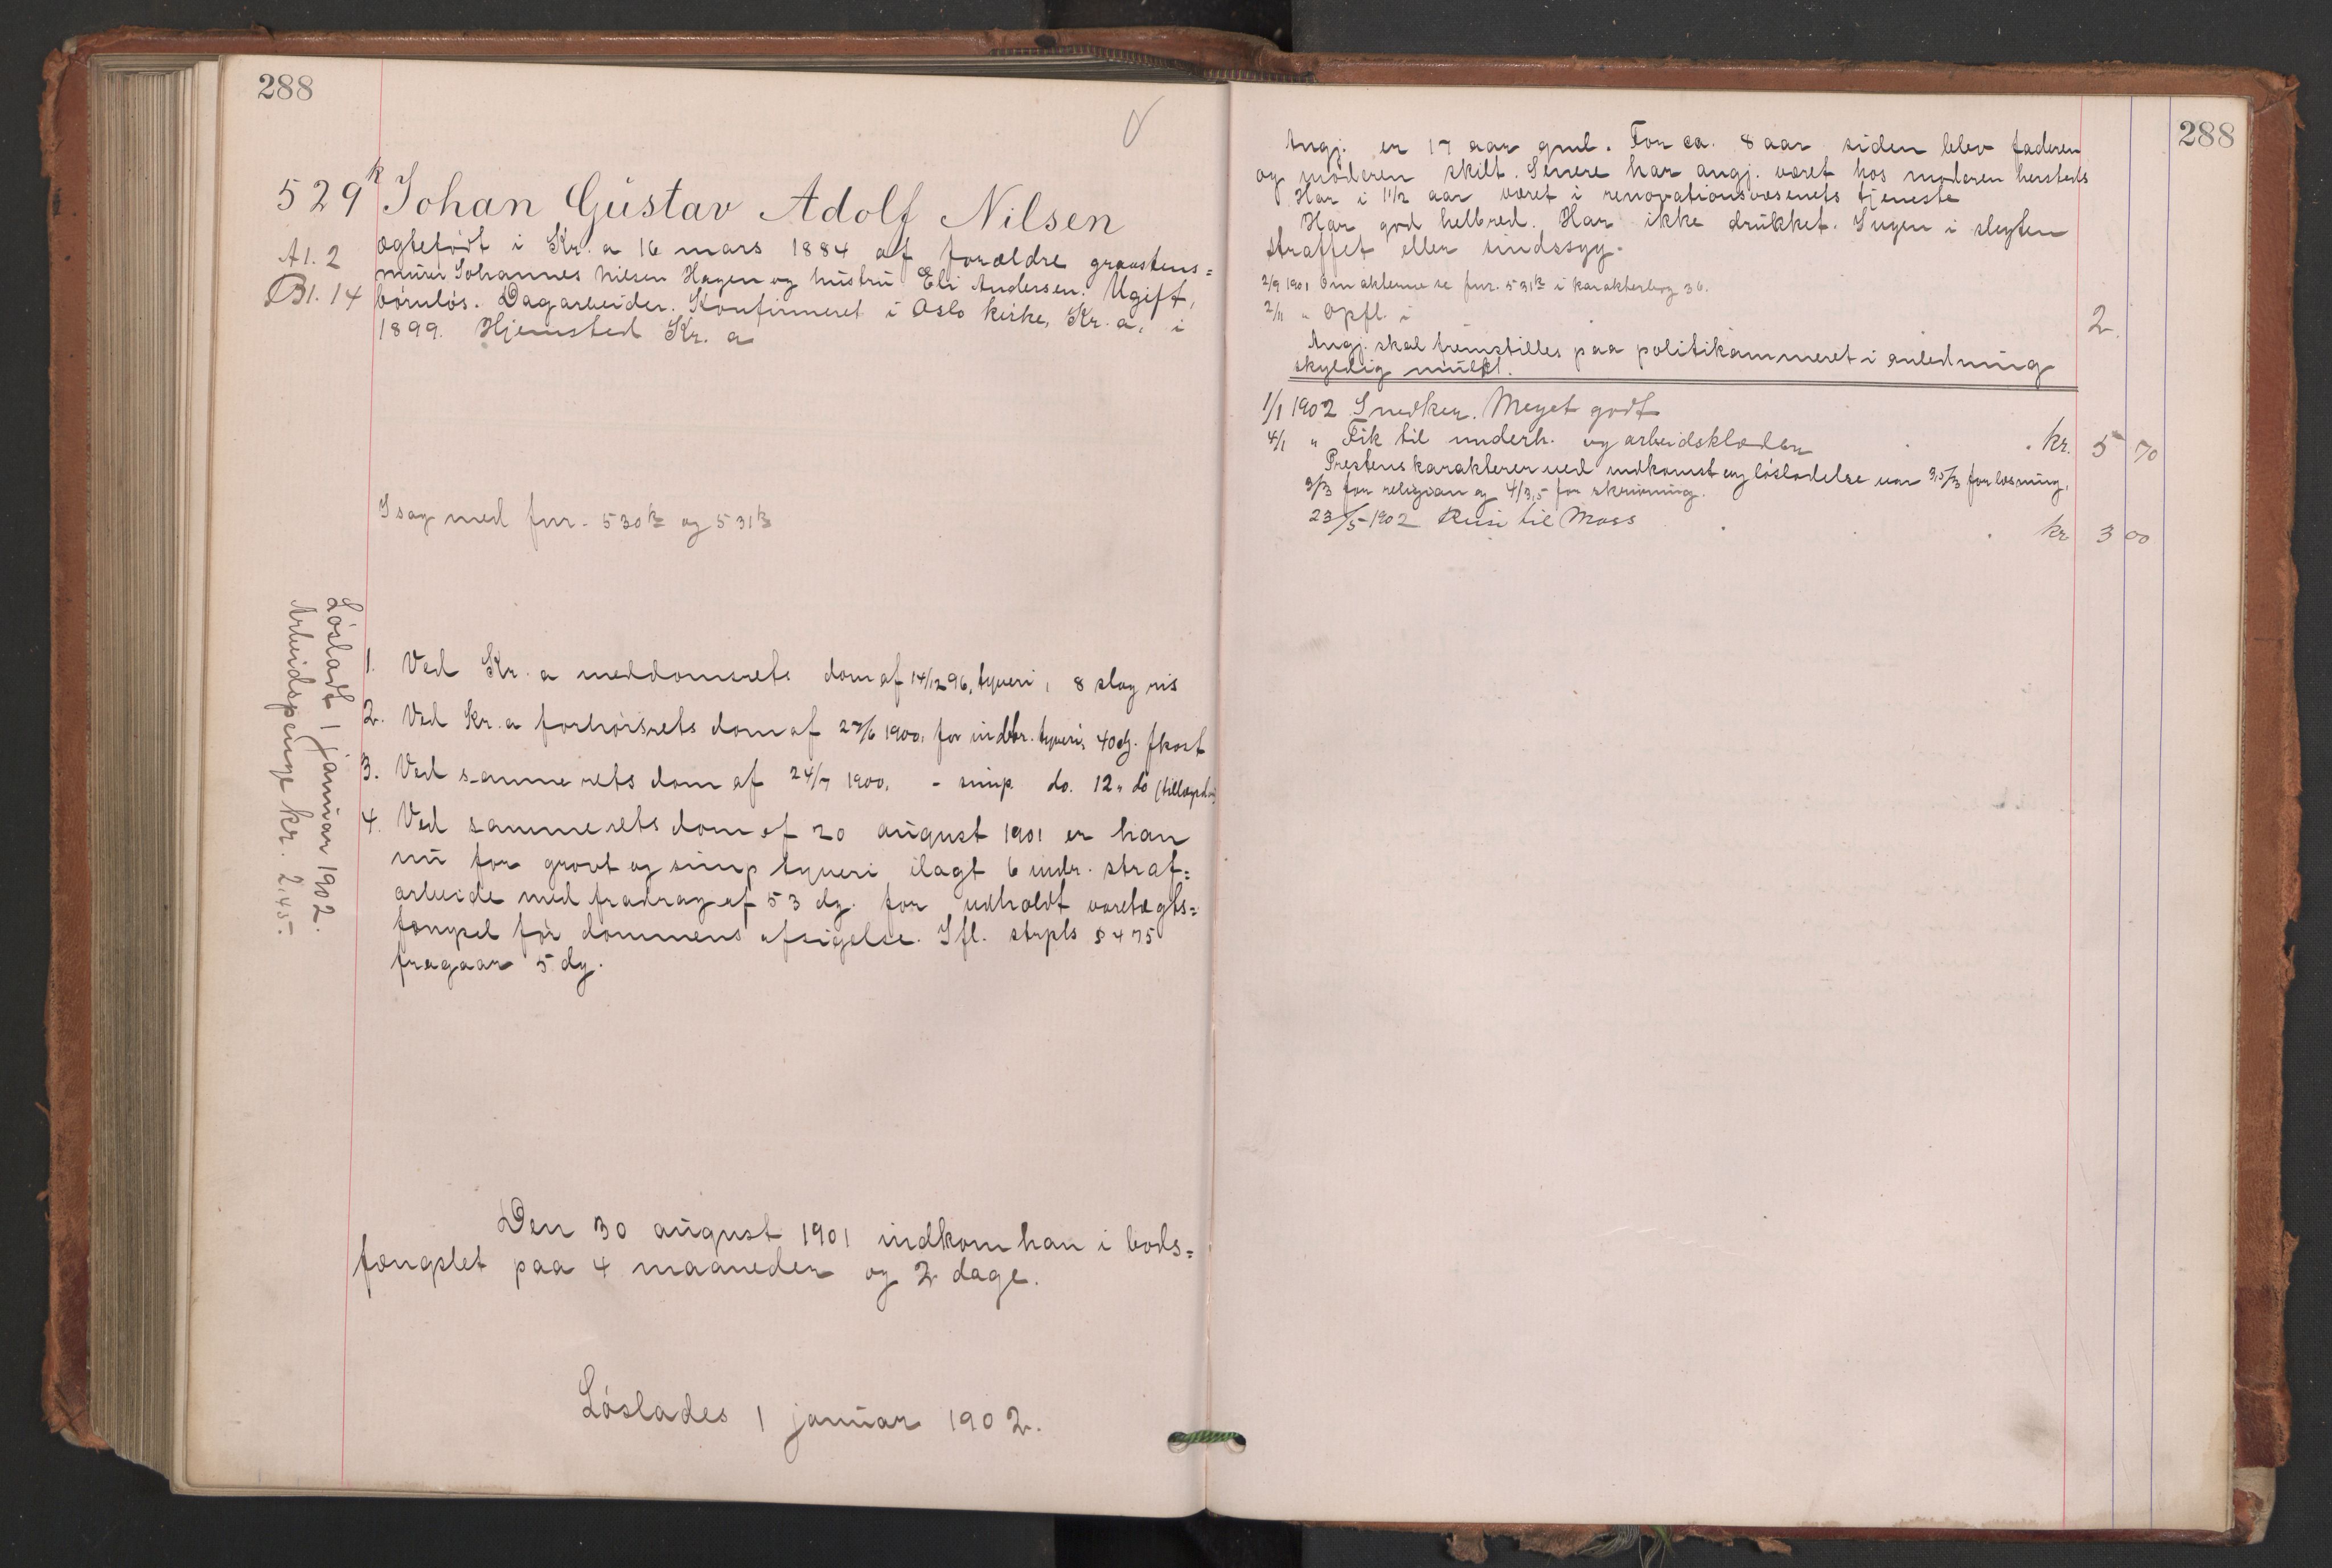 288
529k Johan Gustav Adolf Nilsen
A1. 2
B1. 14
ægtefødt i Kr.a 16 mars 1884 af forældre graastens=
murer Johannes Nilsen Hagen og hustru Eli Andersen. Ugift,
børnløs. Dagarbeider. Konfirmeret i Oslo kirke, Kr.a, i
1899. Hjemsted Kr.a
I sag med fnr. 530k og 531k
Løsladt 1 januar 1902.
Arbeidspenge kr. 2,45.
1. Ved Kr.a meddomsrets dom af 14/12 96, tyveri, 8 slag ris
2. Ved Kr.a forhørsrets dom af 27/6 1900, for indbr. tyveri, 40 dg. fkost
3. Ved samme rets dom af 24/7 1900, - simp. do. 12 " do
4. Ved samme rets dom af 20 august 1901 er han
nu for grovt og simp tyveri ilagt 6 mdr. straf=
arbeide med fradrag af 53 dg. for udholdt varetægts=
fængsel før dommens afsigelse. Ifl. strpls § 475
fragaar 5 dg.
Den 30 august 1901 indkom han i bods=
fængslet paa 4 maaneder og 2 dage.
Løslades 1 januar 1902.
288
Angj. er 17 aar gml. For ca. 8 aar siden blev faderen
og moderen skilt. Senere har angj. været hos moderen hersteds
Har i 1 1/2 aar været i renovationsvæsenets tjeneste
Har god helbred. Har ikke drukket. Ingen i slegten
straffet eller sindssyg.
2/9 1901 Om akterne se fnr. 531k i karakterbog 36.
2/11 " Opfl. i 2
Angj. skal fremstilles paa politikammeret i anledning
skyldig mulkt.
1/1 1902 Snedker. Meget godt
4/1 " Fik til underh. og arbeidsklæder . kr. 5 70
Prestens karakterer ved indkomst og løsladelse var 3,5/3 for læsning,
3/3 for religion og 4/3,5 for skrivning.
23/5 1902 Reise til Moss . kr 3 00